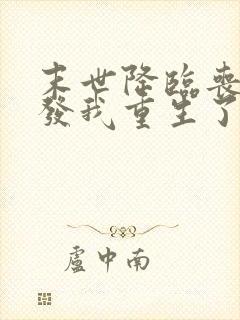 末世降臨喪
發我重生了
盧中南